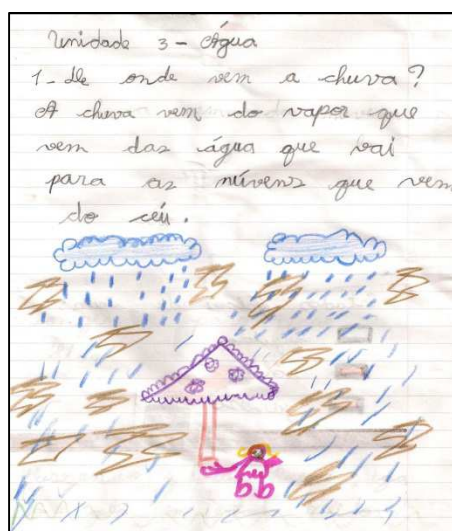 Unidade 3 - Água
1- De onde vem a chuva?
A chuva vem do vapor que
vem das água que vai
para as núvens que vem
do céu.